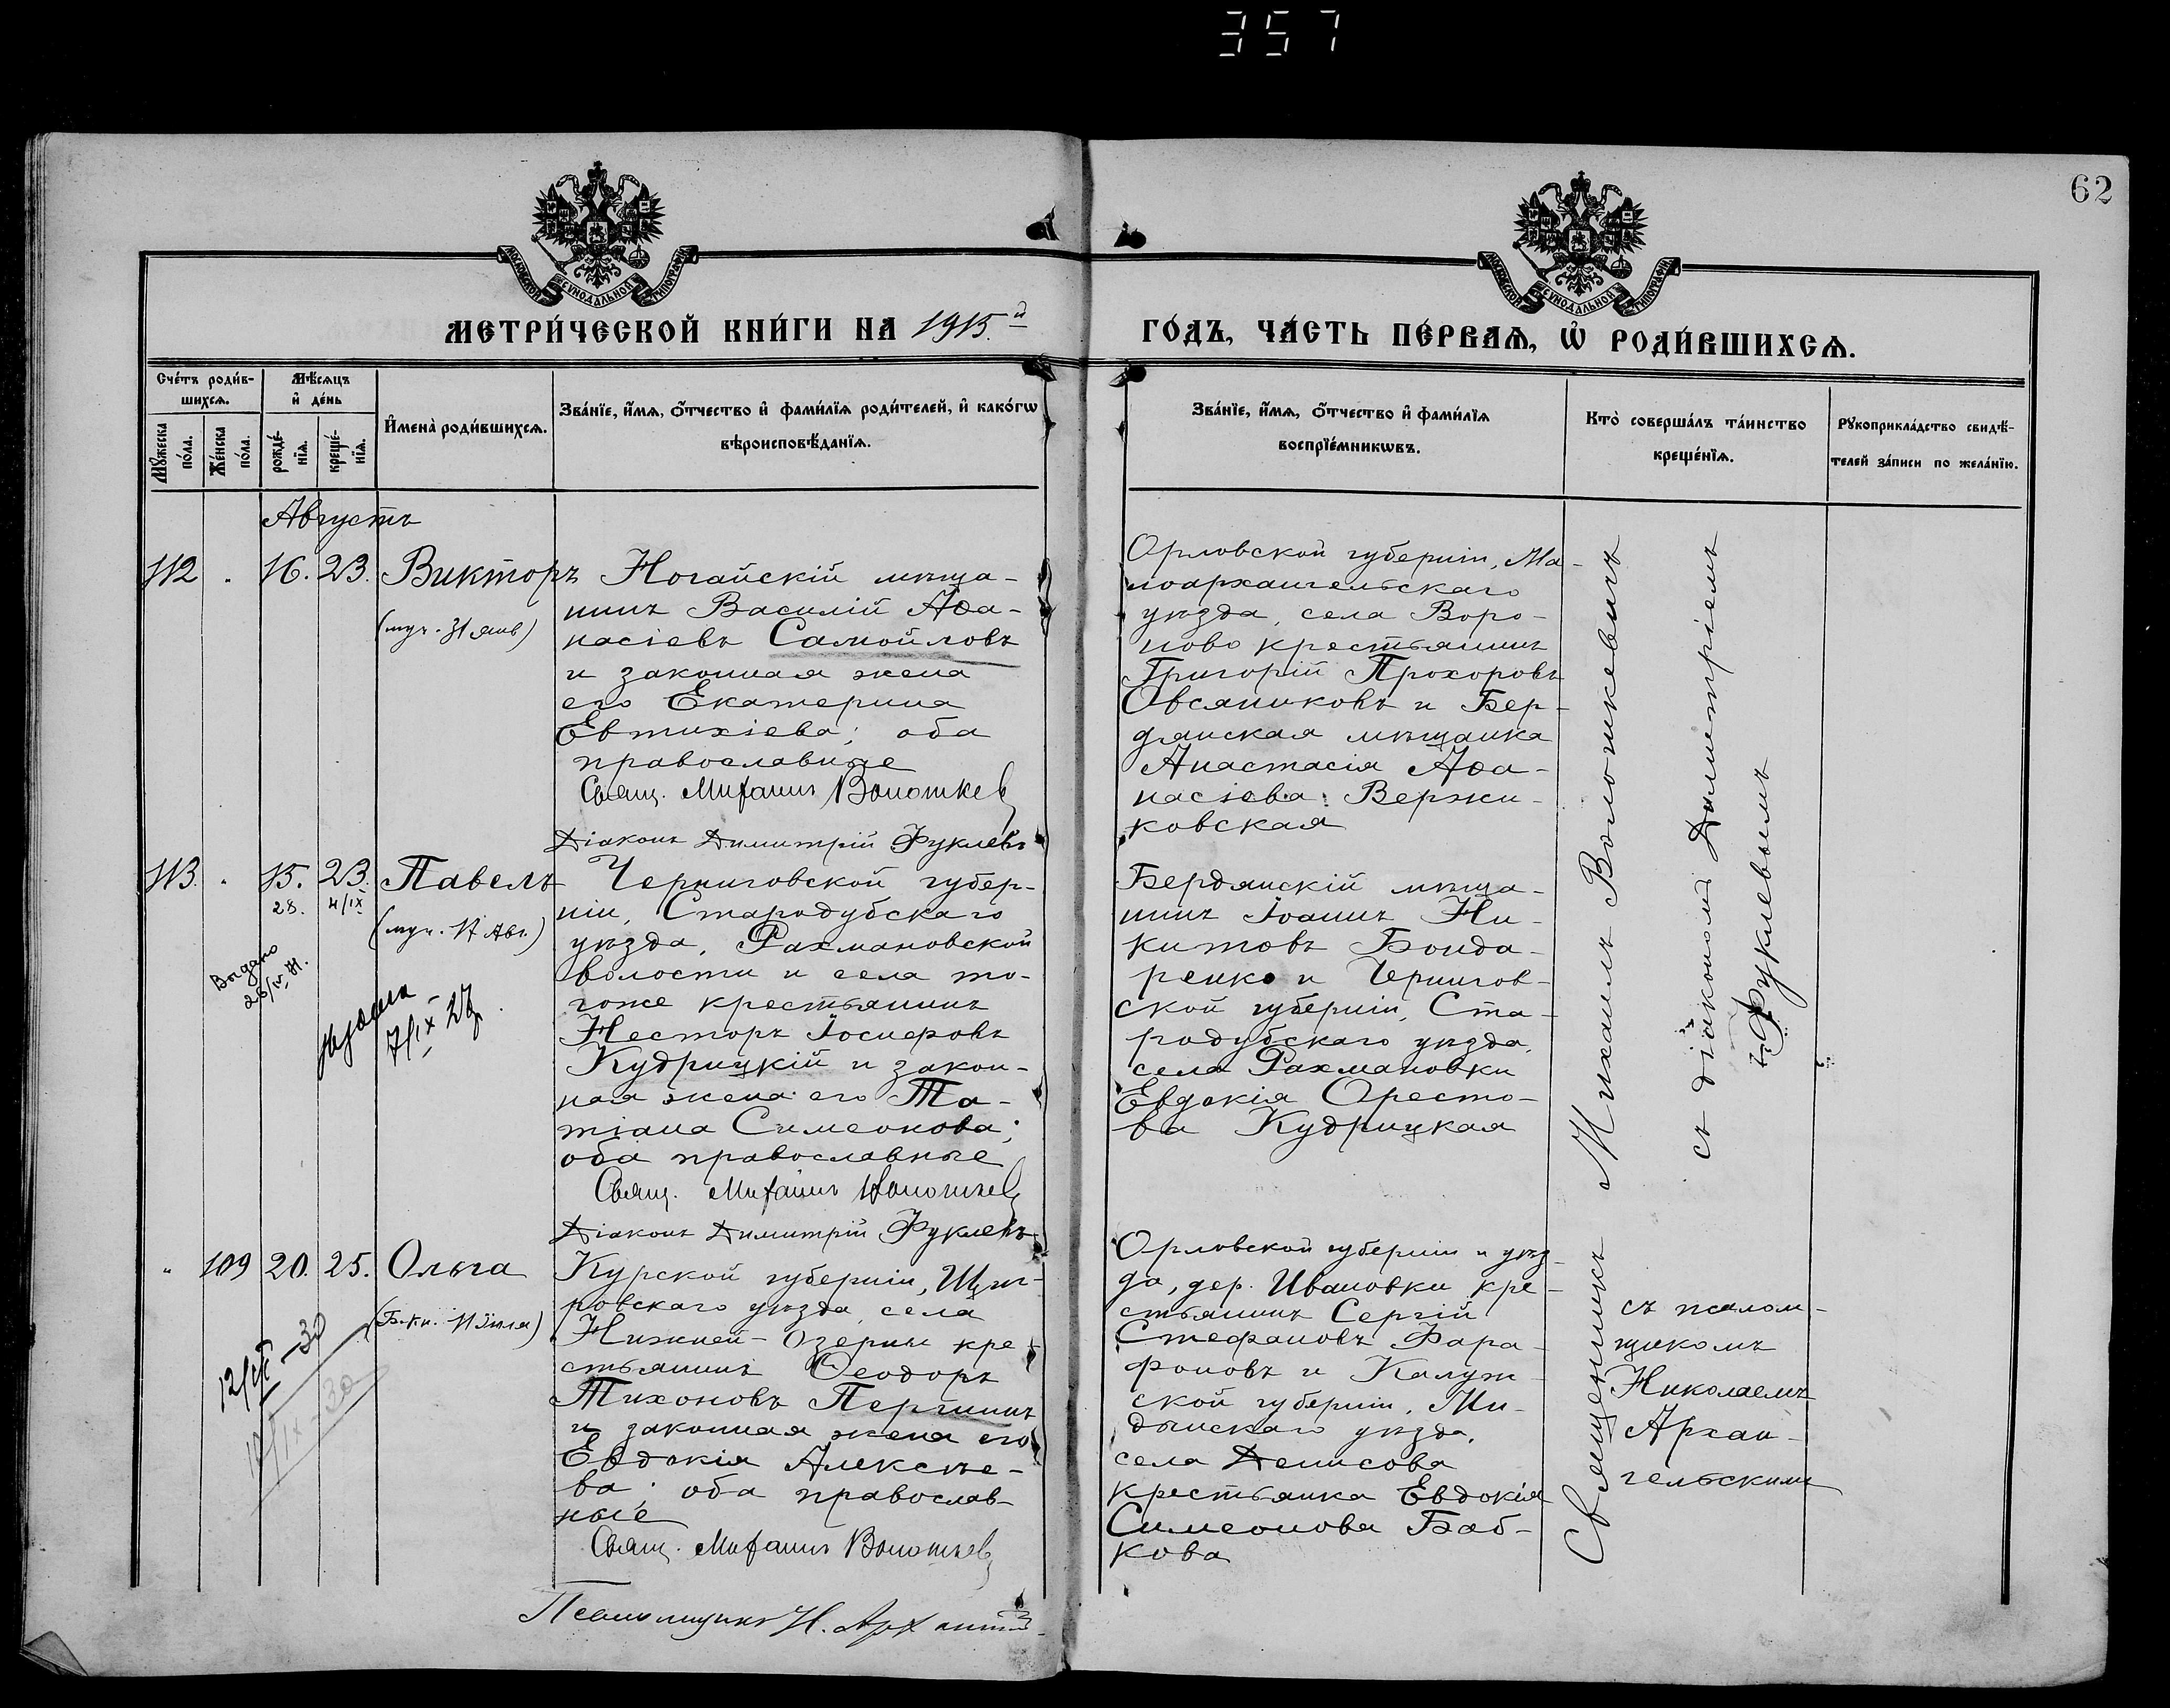 357
62
МОСКОВСКОЙ СѴНОДАЛЬНОЙ ТИПОГРАФІИ
МОСКОВСКОЙ СѴНОДАЛЬНОЙ ТИПОГРАФІИ
МЕТРИ́ЧЕСКОЙ КНИ́ГИ НА 1915.й
ГО́ДЪ, ЧА́СТЬ ПЕ́РВАѦ, Ѡ҆ РОДИ́ВШИХСѦ.
Сче́тъ роди́в-
шихсѧ.
Мѣ́сѧцъ
и҆ де́нь
Мꙋ́жеска
по́ла.
Же́нска
по́ла.
рожде́-
нїѧ.
креще́-
нїѧ.
И҆мена̀ роди́вшихсѧ.
Зва́нїе, и҆́мѧ, ѻ҆́тчество и҆ фами́лїѧ роди́телей, и҆ како́гѡ
вѣроисповѣ́данїѧ.
Зва́нїе, и҆́мѧ, ѻ҆́тчество и҆ фами́лїѧ
воспрїе́мникѡвъ.
Кто̀ соверша́лъ та́инство
креще́нїѧ.
Рꙋкоприкла́дство свидѣ́-
телей за́писи по жела́нїю.
Августъ
112 . 16. 23. Викторъ
(муч. 31 янв)
Ногайскій мѣща-
нинъ Василій Аѳа-
насіевъ Самойловъ
и законная жена
его Екатерина
Евтихіева; оба
православные
Свящ. Михаилъ Волошкев
Діаконъ Димитрій Фуклевъ
Орловской губерніи, Ма-
лоархангельскаго
уѣзда, села Воро-
ново крестьянинъ
Григорій Прохоровъ
Овсяниковъ и Бер-
дянская мѣщанка
Анастасія Аѳа-
насіева Вержи-
ковская
113. . 15. 23. Павелъ
28. 4/IX
(муч. 17 Авг.)
Выдано
28/IV 41.
7/IX
Черниговской губер-
ніи, Стародубскаго
уѣзда, Рахмановской
волости и села то-
гоже крестьянинъ
Несторъ Іосифовъ
Кудрицкій и закон-
ная жена его Та-
тіана Симеонова;
оба православные
Свящ. Михаилъ Волошкев
Діаконъ Димитрій Фуклевъ
Бердянскій мѣща-
нинъ Іоаннъ Ни-
китовъ Бонда-
ренко и Чернигов-
ской губерніи, Ста-
родубскаго уѣзда,
села Рахмановки
Евдокія Оресто-
ва Кудрицкая
" 109 20. 25. Ольга
(Б. кн. 11 Іюля)
12/IX-30
11/IX-30
Курской губерніи, Щиг-
ровскаго уѣзда, села
Нижней-Озерны кре-
стьянинъ Ѳеодоръ
Тихоновъ Пергинъ
и законная жена его
Евдокія Алексѣе-
ва; оба православ-
ные
Свящ. Михаилъ Волошкев
Псаломщикъ Н. Арх
Орловской губерніи и уѣз-
да, дер. Ивановки кре-
стьянинъ Сергій
Стефановъ Фара-
фоновъ и Калуж-
ской губерніи, Ми-
дынскаго уѣзда,
села Денисова
крестьянка Евдокія
Симеонова Баб-
кова
Священникъ Михаилъ Волошкевичъ
съ діакономъ Димитріемъ
Фуклевымъ
съ псалом-
щикомъ
Николаемъ
Архан-
гельскимъ